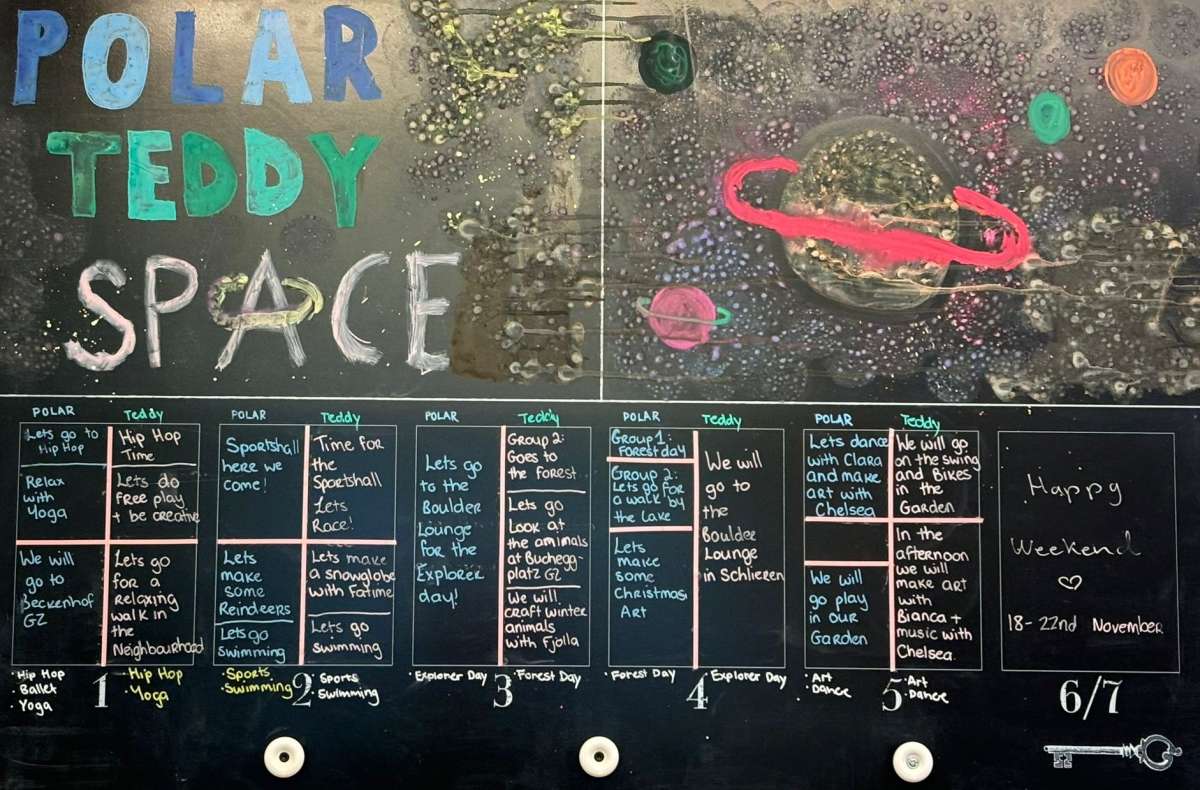 POLAR
TEDDY
SPACE
POLAR
Lets go to
Hip Hop
Relax
with
Yoga
We will
go to
Beckenhof
GZ
Teddy
Hip Hop
Time
Lets do
free play
+ be creative
Lets go
for a
relaxing
walk in
the
Neighbourhood
·Hip Hop
·Ballet
·Yoga
1
·Hip Hop
·Yoga
POLAR
Sportshall
here we
come!
Lets
make
some
Reindeers
Lets go
swimming
Teddy
Time for
the
Sportshall
Lets
Race!
Lets make
a snowglobe
with Fatime
Lets go
swimming
·Sports
·Swimming
2
·Sports
·Swimming
POLAR
Lets go
to the
Boulder
Lounge
for the
Explorer
day!
Teddy
Group 2:
Goes to
the forest
Lets go
Look at
the amimals
at Buchegg-
platz GZ
We will
craft winter
animals
with Fjolla
·Explorer Day
3
·Forest Day
POLAR
Group 1:
Forest day
Group 2:
Lets go for
a walk by
the Lake
Lets
make
some
Christmas
Art
Teddy
We will
go to
the
Boulder
Lounge
in Schlieren
·Forest Day
4
·Explorer Day
POLAR
Lets dance
with Clara
and make
art with
Chelsea
We will
go play
in our
Garden
Teddy
We will go
on the swing
and Bikes
in the
Garden
In the
afternoon
we will
make art
with
Bianca +
music with
Chelsea.
·Art
·Dance
5
·Art
·Dance
Happy
Weekend
♡
18-22nd November
6/7